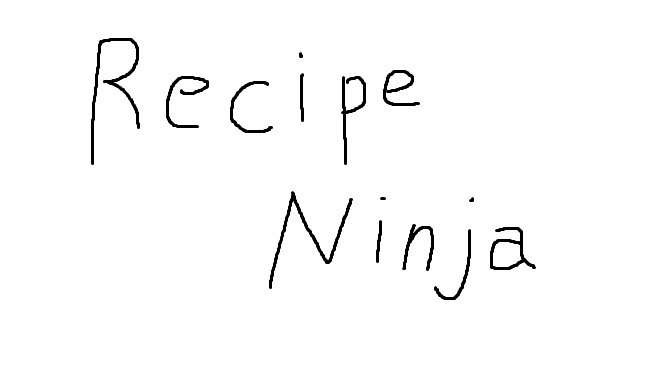 Recipe
Ninja